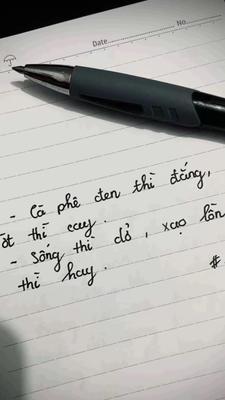 Date No.
- Cà phê đen thì đắng,
ớt thì cay.
- Sống thì dở, xạo lồn
thì hay.
#